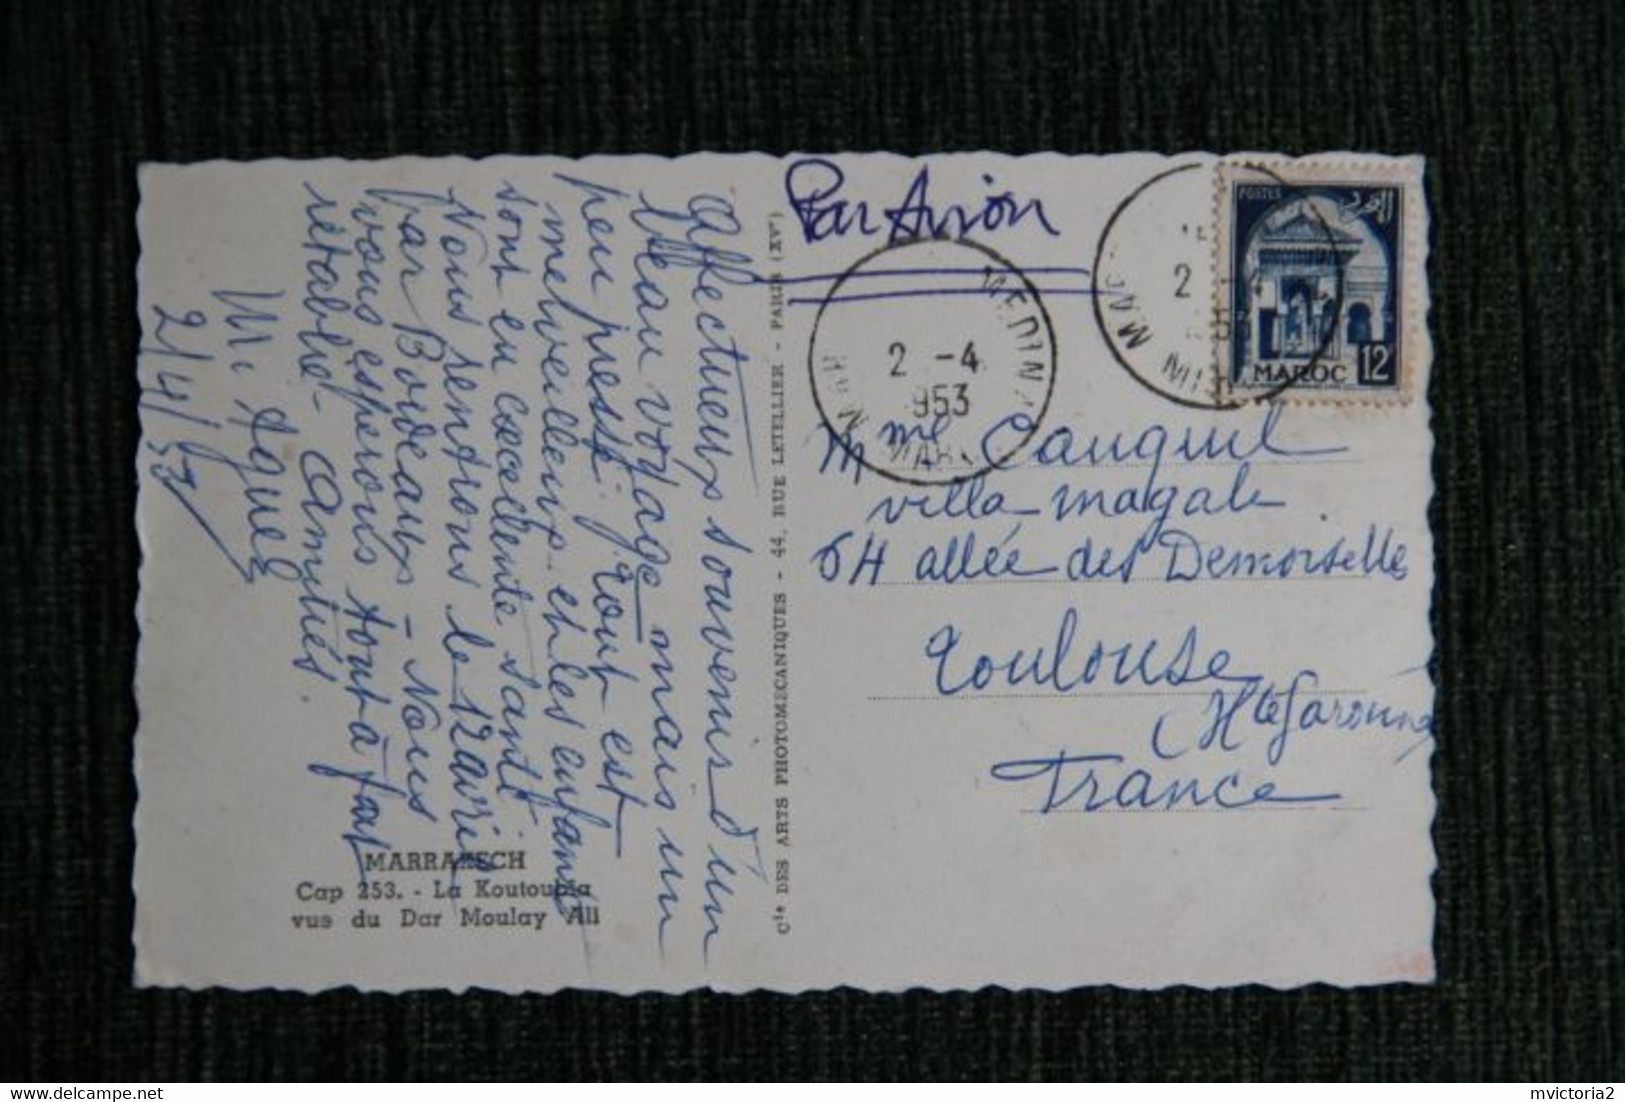 Affectueux souvenirs d'un
beau voyage mais un
peu pressé. Tout est
merveilleux et les enfants
sont en excellente santé
Nous rentrons le 12 avril
par Bordeaux - Nous
vous espérons tout à fait
rétablie - Amitiés.
M. Aquel
2/4/53
MARRAKECH
Cap 253. - La Koutoubia
vue du Dar Moulay Ali
Cie DES ARTS PHOTOMÉCANIQUES - 44, RUE LETELLIER - PARIS (XVe)
Par Avion
MEDINA
2 -4
953
MAR
2 -4
53
POSTES
البريد
MAROC 12F
Mme Cauquil
villa magali
64 allée des Demoiselles
Toulouse
(Hte Garonne)
France
mvictoria2